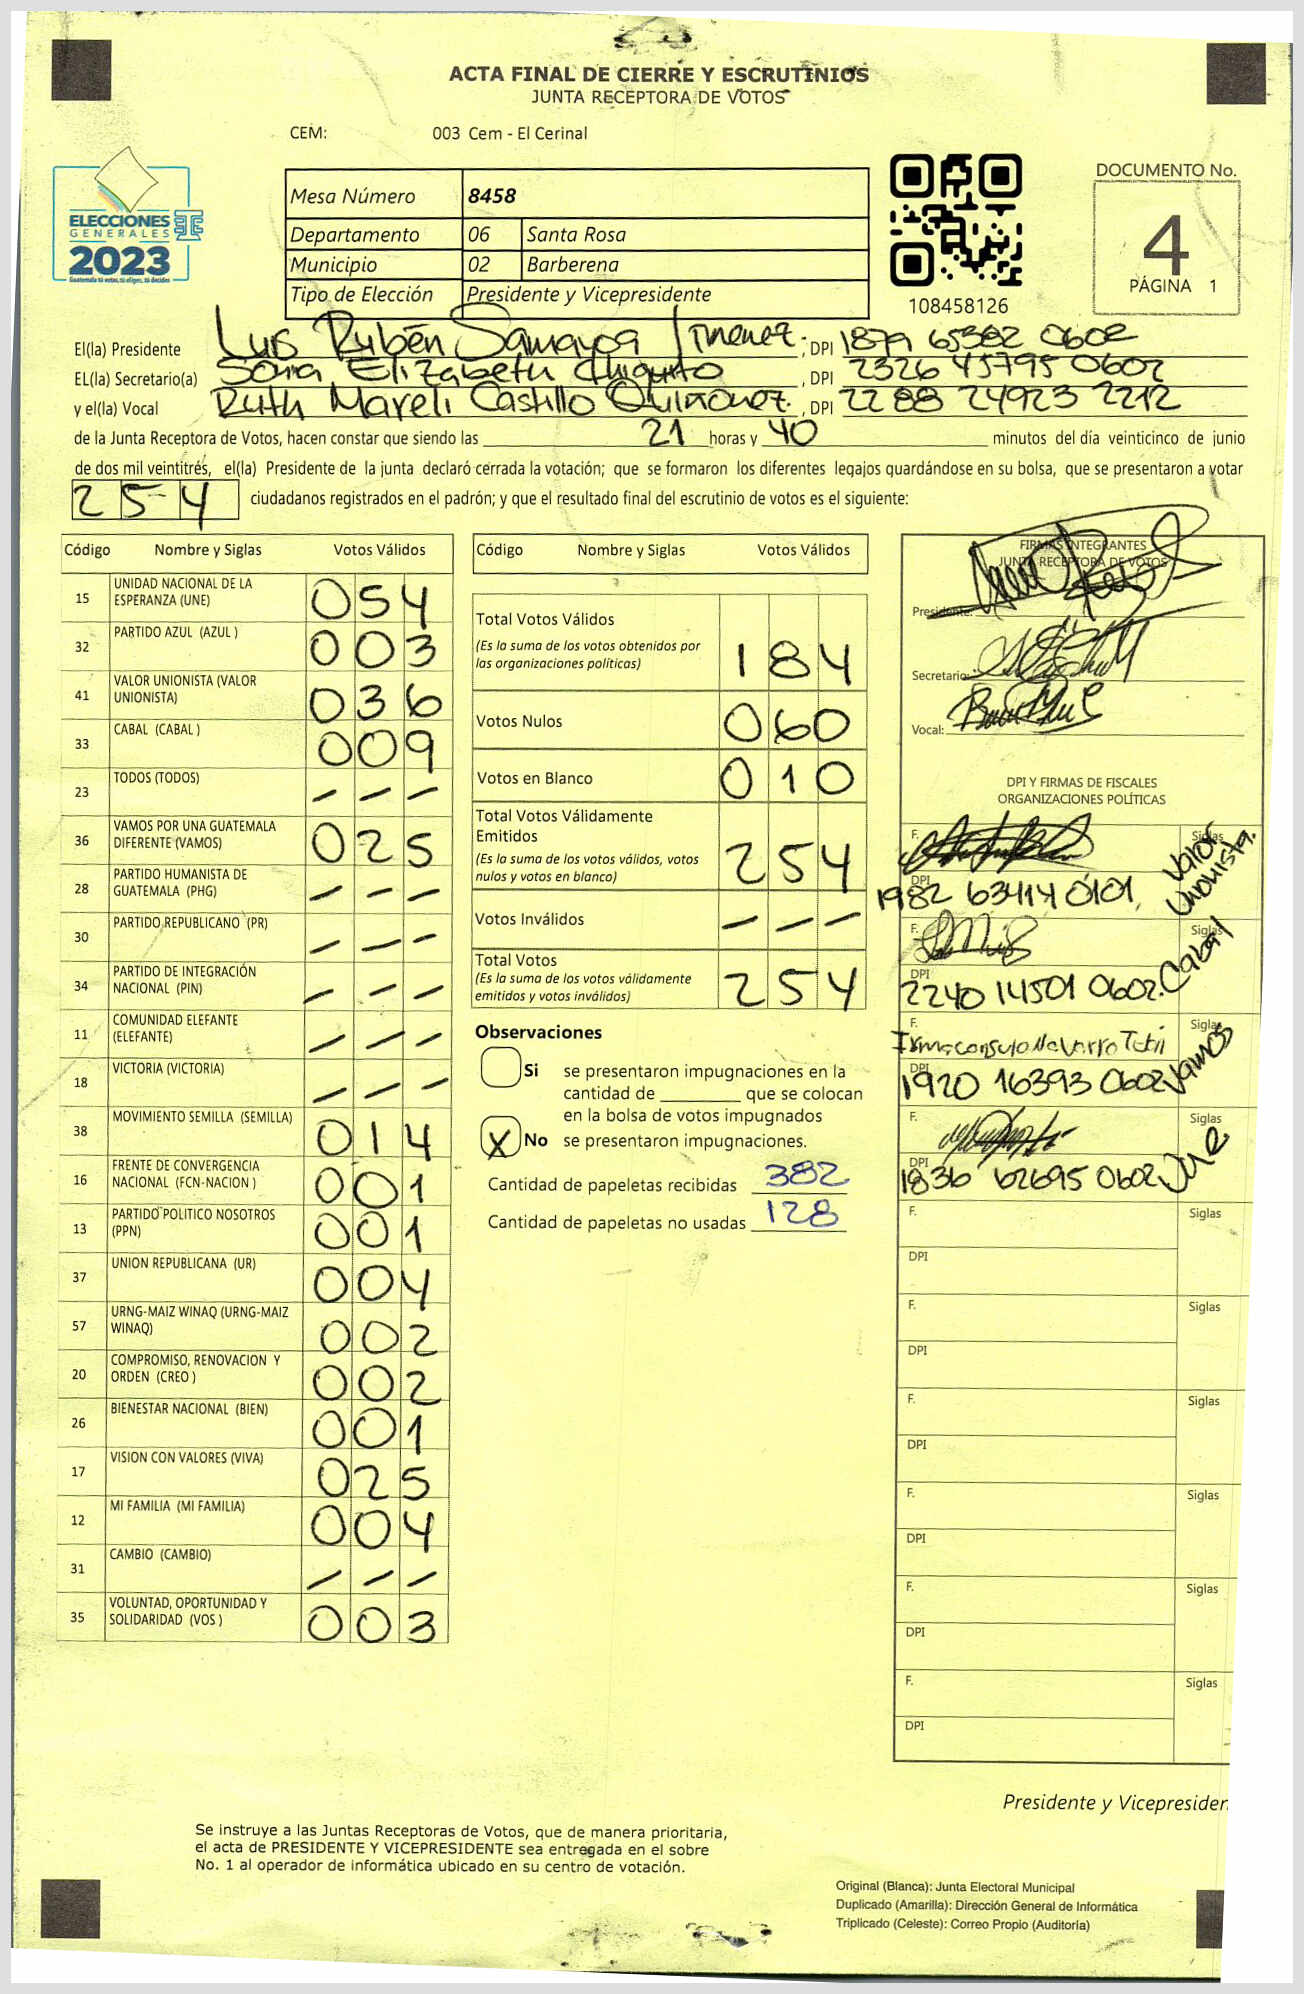 ACTA FINAL DE CIERRE Y ESCRUTINIOS
JUNTA RECEPTORA DE VOTOS
CEM: 003 Cem - El Cerinal
ELECCIONES
GENERALES
2023
Guatemala tú votas, tú eliges, tú decides
Mesa Número 8458
Departamento 06 Santa Rosa
Municipio 02 Barberena
Tipo de Elección Presidente y Vicepresidente
108458126
DOCUMENTO No.
4
PÁGINA 1
El(la) Presidente Luis Rubén Samayoa Jimenez; DPI 1879 65382 0602
EL(la) Secretario(a) Sonia Elizabeth Chiquito, DPI 2326 45795 0602
y el(la) Vocal Ruth Mareli Castillo Quiñonez, DPI 2288 24923 2212
de la Junta Receptora de Votos, hacen constar que siendo las 21 horas y 40 minutos del día veinticinco de junio
de dos mil veintitrés, el(la) Presidente de la junta declaró cerrada la votación; que se formaron los diferentes legajos quardándose en su bolsa, que se presentaron a votar
254 ciudadanos registrados en el padrón; y que el resultado final del escrutinio de votos es el siguiente:
Código Nombre y Siglas Votos Válidos
15 UNIDAD NACIONAL DE LA ESPERANZA (UNE) 054
32 PARTIDO AZUL (AZUL ) 003
41 VALOR UNIONISTA (VALOR UNIONISTA) 036
33 CABAL (CABAL ) 009
23 TODOS (TODOS) - - -
36 VAMOS POR UNA GUATEMALA DIFERENTE (VAMOS) 025
28 PARTIDO HUMANISTA DE GUATEMALA (PHG) - - -
30 PARTIDO REPUBLICANO (PR) - - -
34 PARTIDO DE INTEGRACIÓN NACIONAL (PIN) - - -
11 COMUNIDAD ELEFANTE (ELEFANTE) - - -
18 VICTORIA (VICTORIA) - - -
38 MOVIMIENTO SEMILLA (SEMILLA) 014
16 FRENTE DE CONVERGENCIA NACIONAL (FCN-NACION ) 001
13 PARTIDO POLITICO NOSOTROS (PPN) 001
37 UNION REPUBLICANA (UR) 004
57 URNG-MAIZ WINAQ (URNG-MAIZ WINAQ) 002
20 COMPROMISO, RENOVACION Y ORDEN (CREO ) 002
26 BIENESTAR NACIONAL (BIEN) 001
17 VISION CON VALORES (VIVA) 025
12 MI FAMILIA (MI FAMILIA) 004
31 CAMBIO (CAMBIO) - - -
35 VOLUNTAD, OPORTUNIDAD Y SOLIDARIDAD (VOS ) 003
Código Nombre y Siglas Votos Válidos
Total Votos Válidos
(Es la suma de los votos obtenidos por
las organizaciones políticas) 184
Votos Nulos 060
Votos en Blanco 010
Total Votos Válidamente
Emitidos
(Es la suma de los votos válidos, votos
nulos y votos en blanco) 254
Votos Inválidos - - -
Total Votos
(Es la suma de los votos válidamente
emitidos y votos inválidos) 254
Observaciones
Si se presentaron impugnaciones en la
cantidad de ________ que se colocan
en la bolsa de votos impugnados
X No se presentaron impugnaciones.
Cantidad de papeletas recibidas 382
Cantidad de papeletas no usadas 128
FIRMAS INTEGRANTES
JUNTA RECEPTORA DE VOTOS
Presidente:
Secretario:
Vocal:
DPI Y FIRMAS DE FISCALES
ORGANIZACIONES POLÍTICAS
F. Siglas Valor Unionista.
DPI 1982 63414 0101,
F. Siglas Cabal
DPI 2240 14501 0602.
F. Irma consuelo Navarro Siglas Vamos
DPI 1920 16393 0602
F. Siglas Une
DPI 1836 62695 0602
F. Siglas
DPI
F. Siglas
DPI
F. Siglas
DPI
F. Siglas
DPI
F. Siglas
DPI
F. Siglas
DPI
Presidente y Vicepresiden
Se instruye a las Juntas Receptoras de Votos, que de manera prioritaria,
el acta de PRESIDENTE Y VICEPRESIDENTE sea entregada en el sobre
No. 1 al operador de informática ubicado en su centro de votación.
Original (Blanca): Junta Electoral Municipal
Duplicado (Amarilla): Dirección General de Informática
Triplicado (Celeste): Correo Propio (Auditoría)